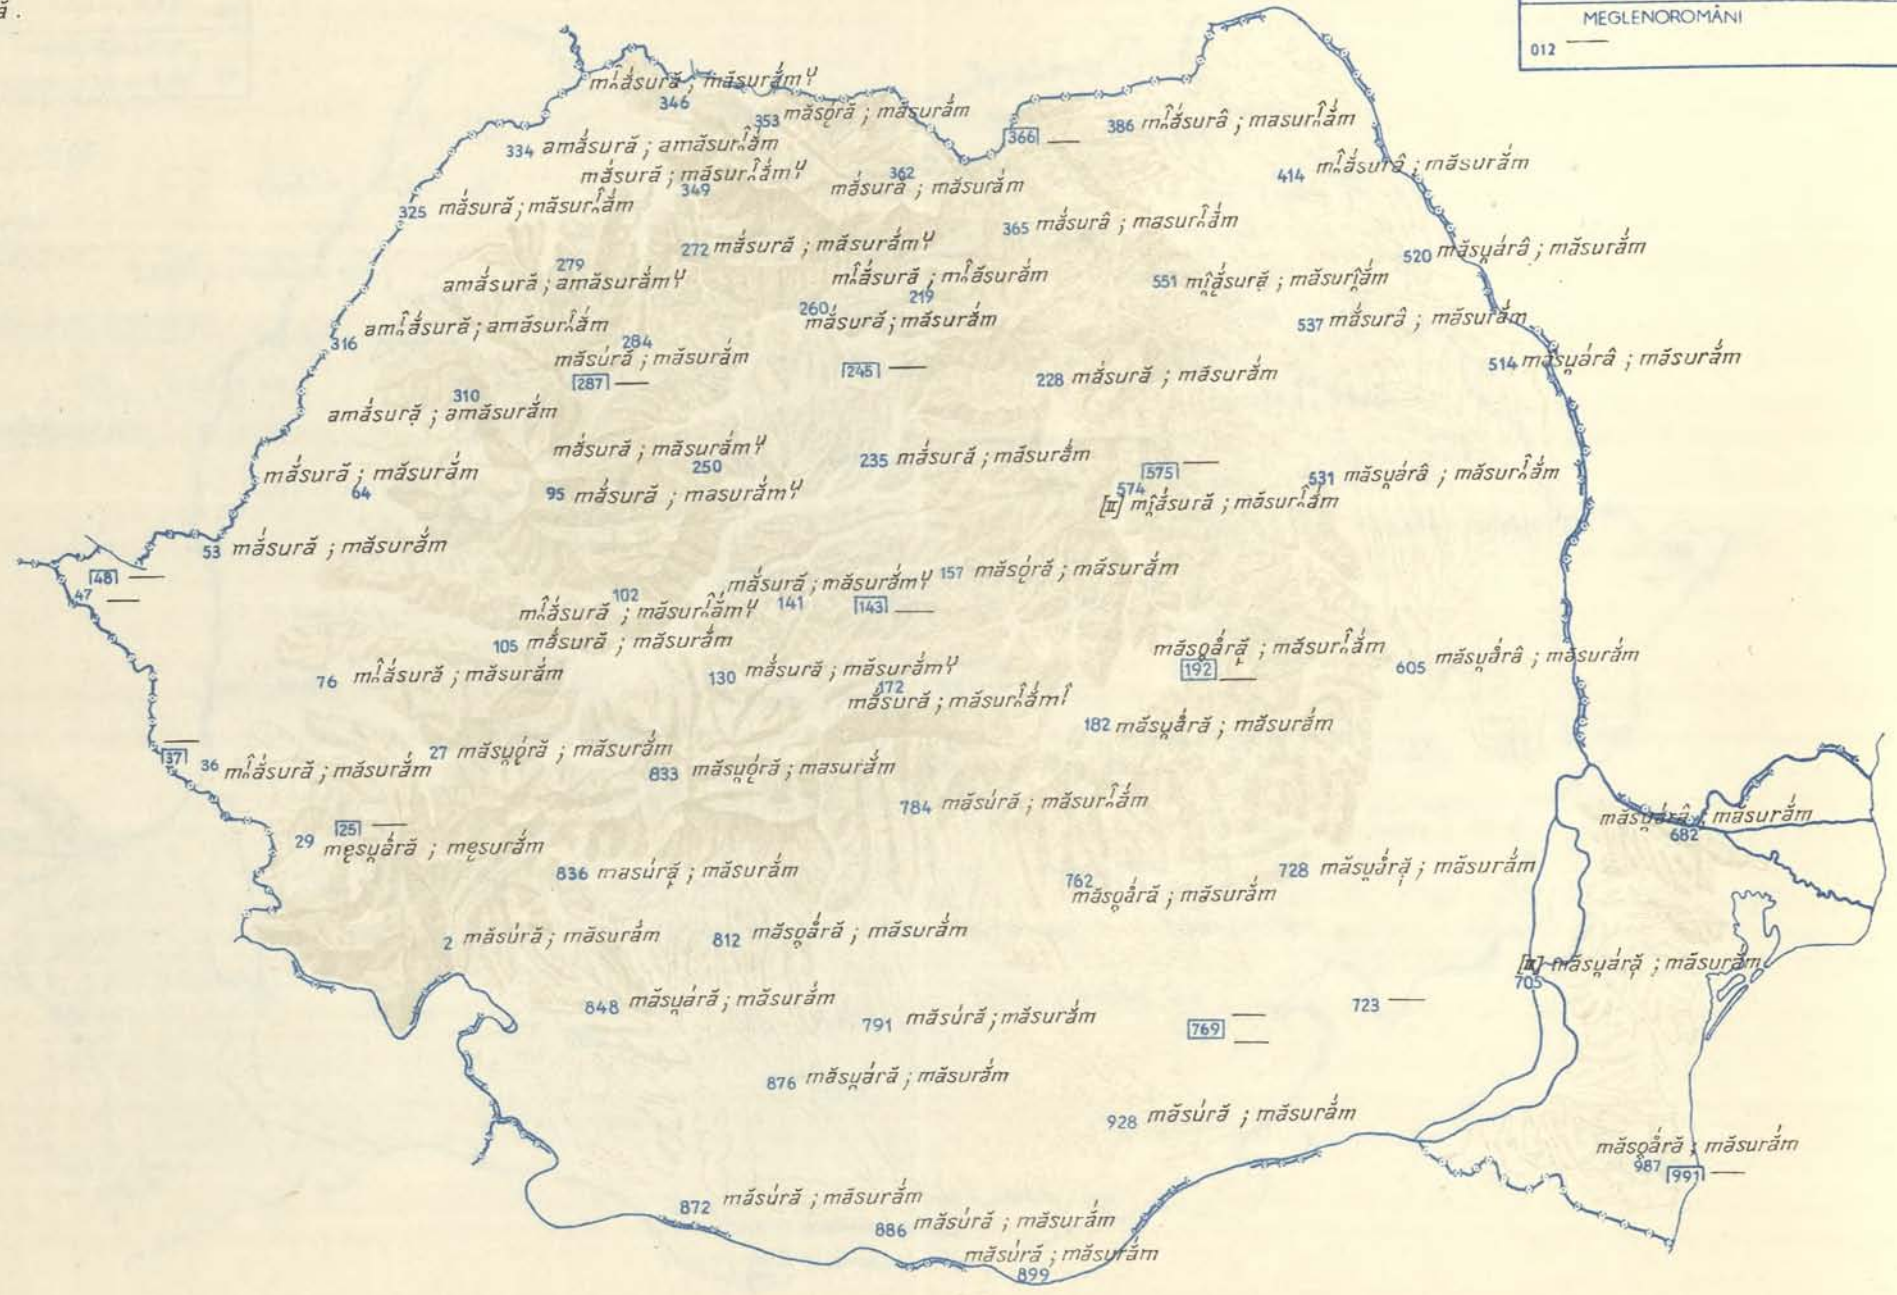 ă.
MEGLENOROMÂNI
012 —
mi̯ắsură ; măsurắmu̯
346
353 măsọ́ră ; măsurắm
366 —
386 mi̯ắsurâ ; masuri̯ắm
334 amắsură ; amăsuri̯ắm
414 mi̯ắsurâ ; măsurắm
mắsură ; măsuri̯ắmu̯
349
362
mắsură ; măsurắm
325 mắsură ; măsuri̯ắm
365 mắsurâ ; masuri̯ắm
272 mắsură ; măsurắmu̯
520 măsu̯árâ ; măsurắm
279
amắsură ; amăsurắmu̯
mi̯ắsură ; mi̯ăsurắm
219
551 mi̯ắsură ; măsuri̯ắm
260
mắsură ; măsurắm
316 ami̯ắsură ; amăsuri̯ắm
537 mắsurâ ; măsurắm
284
măsúră ; măsurắm
514 măsu̯árâ ; măsurắm
287 —
245 —
228 mắsură ; măsurắm
310
amắsură ; amăsurắm
mắsură ; măsurắmu̯
250
235 mắsură ; măsurắm
575 —
531 măsu̯árâ ; măsuri̯ắm
mắsură ; măsurắm
64
95 mắsură ; masurắmu̯
574
[II] mi̯ắsură ; măsuri̯ắm
53 mắsură ; măsurắm
48 —
47 —
mắsură ; măsurắmu̯
141
157 măsọ́ră ; măsurắm
102
mi̯ắsură ; măsuri̯ắmu̯
143 —
105 mắsură ; măsurắm
măso̯ắră ; măsuri̯ắm
192 —
605 măsu̯ắrâ ; măsurắm
76 mi̯ắsură ; măsurắm
130 mắsură ; măsurắmu̯
172
mắsură ; măsuri̯ắmi̯
182 măsu̯ắră ; măsurắm
37 —
36 mi̯ắsură ; măsurắm
27 măsu̯ọ́ră ; măsurắm
833 măsu̯ọ́ră ; masurắm
784 măsúră ; măsuri̯ắm
25 —
29 mẹsu̯ắră ; mẹsurắm
măsu̯árâ ; măsurắm
682
836 masúră ; măsurắm
762
măso̯ắră ; măsurắm
728 măsu̯ắră ; măsurắm
2 măsúră ; măsurắm
812 măso̯ắră ; măsurắm
[II] măsu̯áră ; măsurắm
705
848 măsu̯áră ; măsurắm
791 măsúră ; măsurắm
769 —
723 —
876 măsu̯áră ; măsurắm
928 măsúră ; măsurắm
măso̯ắră ; măsurắm
987
991 —
872 măsúră ; măsurắm
886 măsúră ; măsurắm
măsúră ; măsurắm
899